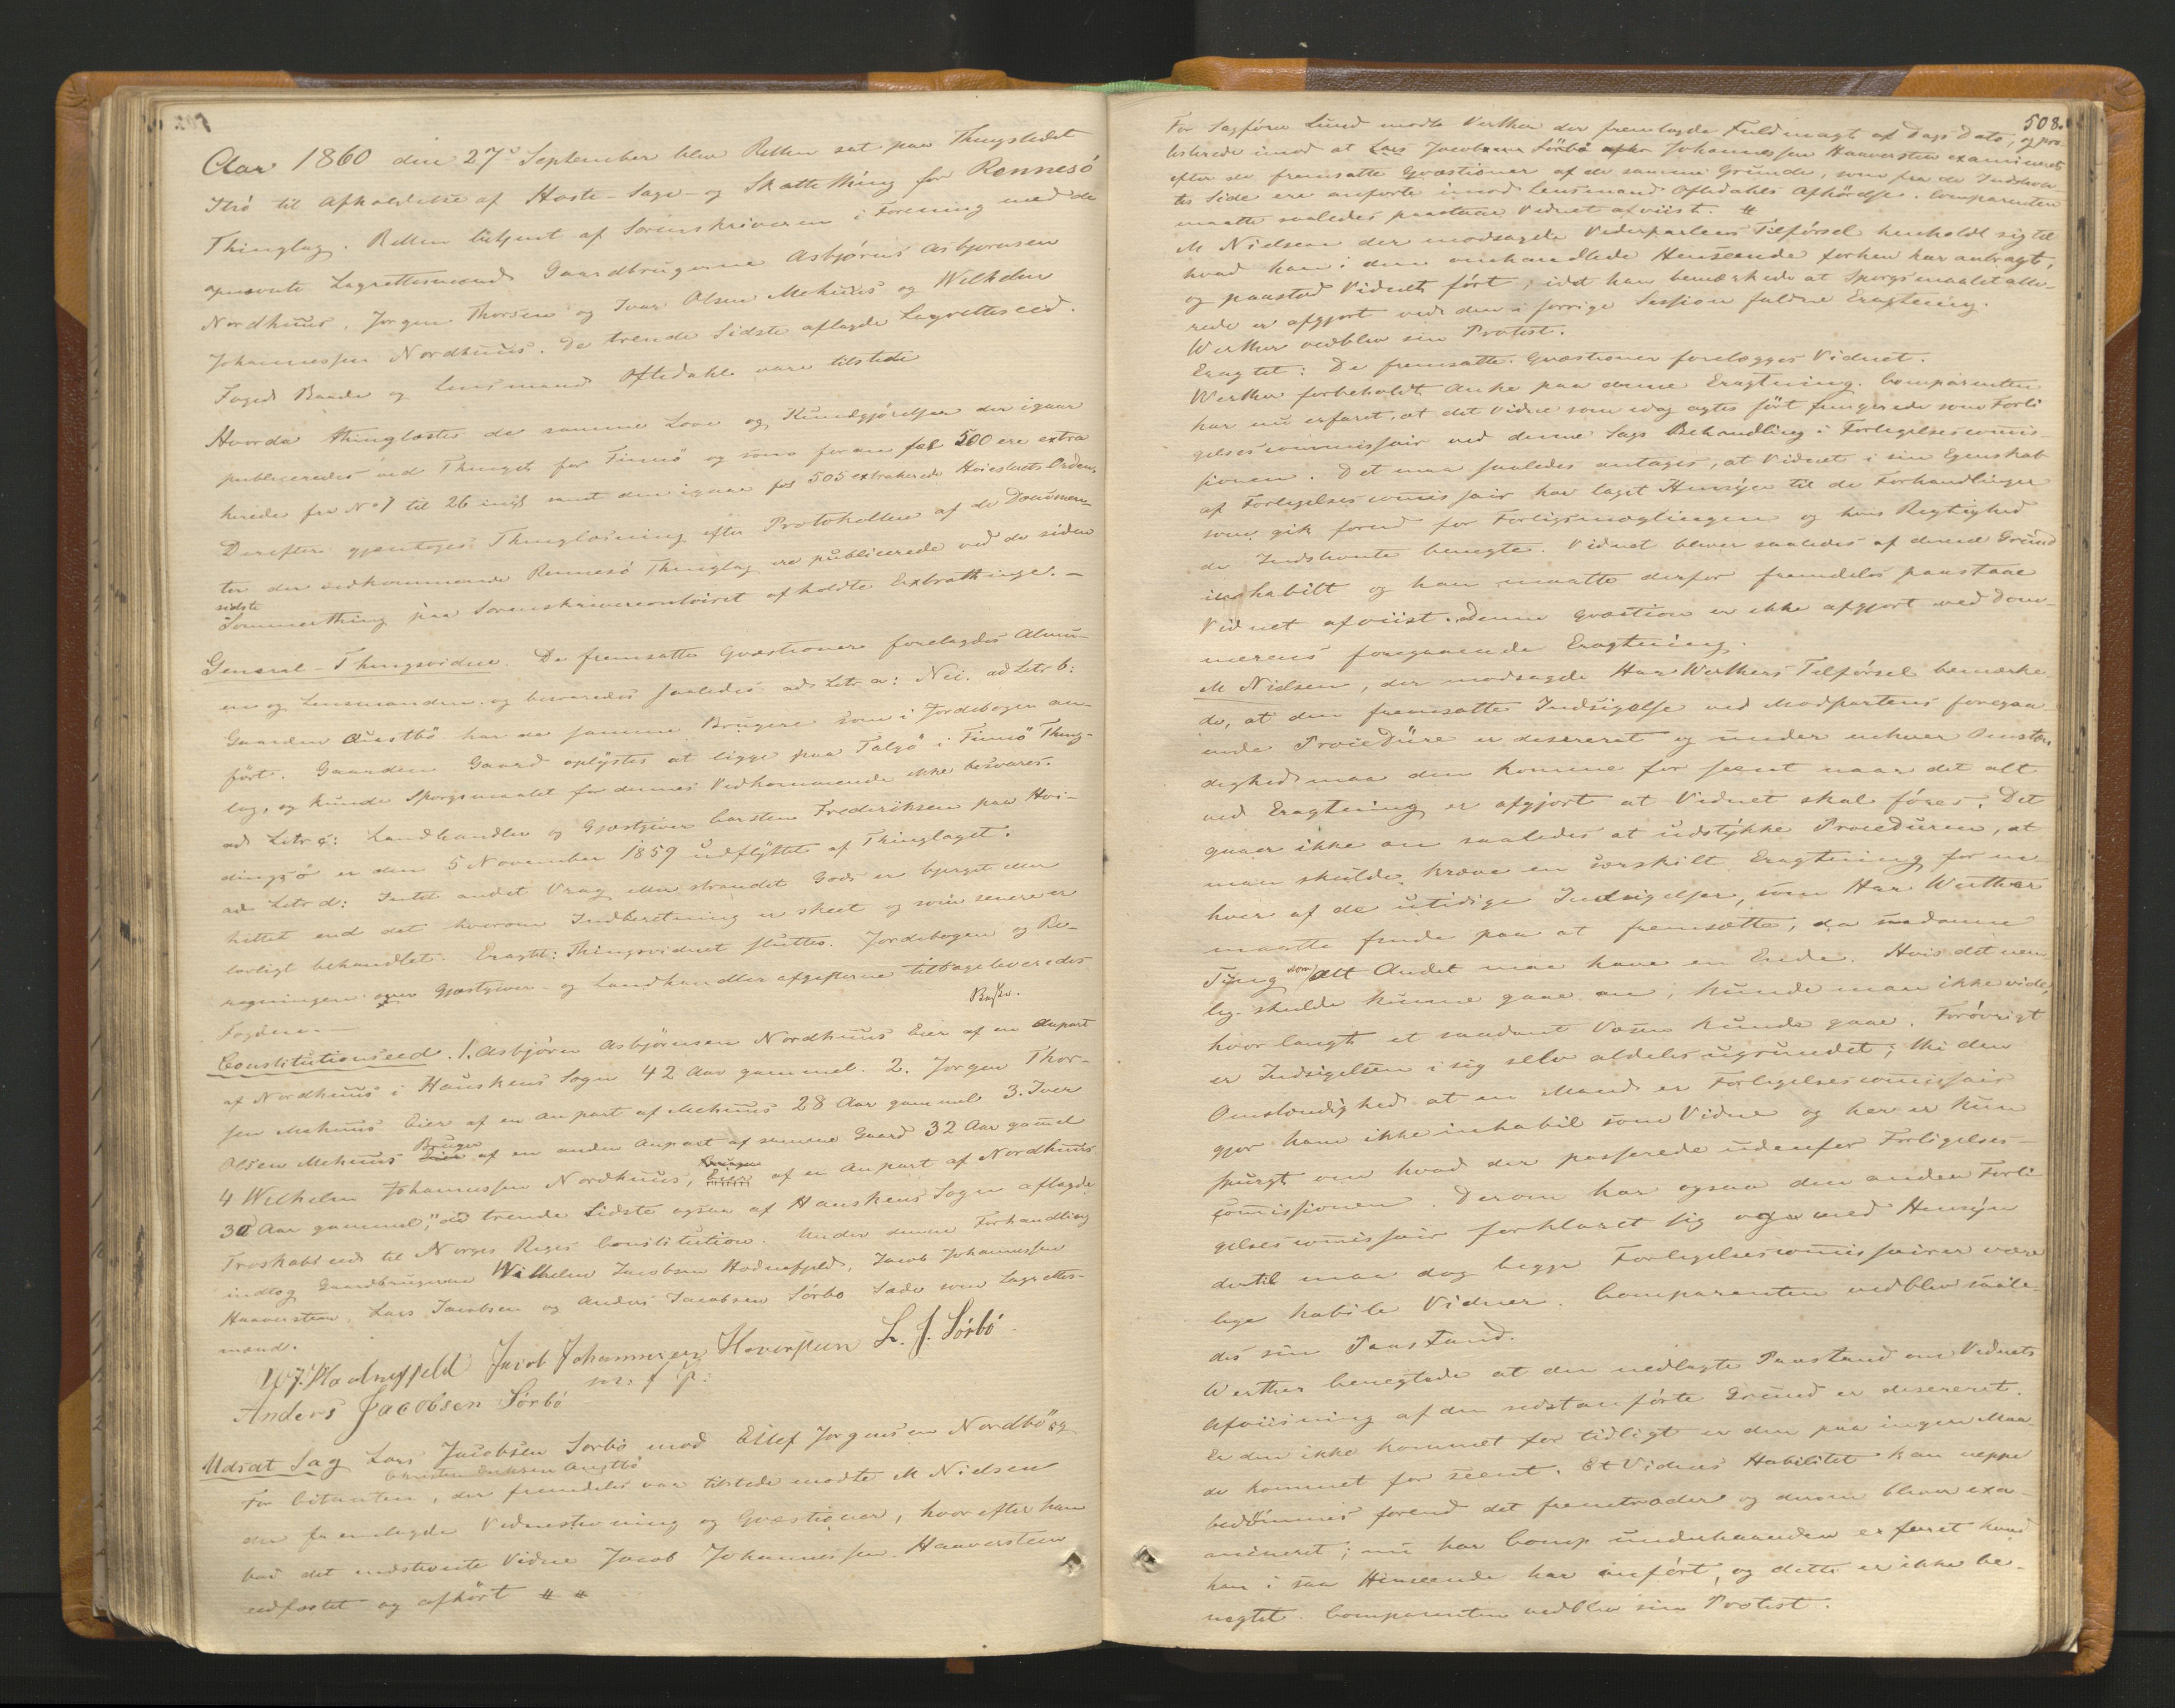 Aar 1860 den 27de September blev Retten sat paa Thingstedet
Strö til Afholdelse af Høste-Sage- og Skattething for Rennesö
Thinglag. Retten betjent af Sorenskriveren i Forening med de
opnævnte Lagrettesmænd Gaardbrugerne Asbjörn Asbjørnsen
Nordhuus, Jørgen Thorsen og Ivar Olsen Mehuus og Wilhelm
Johannessen Nordhuus. De trende Sidste aflagde Lagretteseed.
Foged Baade og Lensmand Oftedahl vare tilstede
Hvorda thinglæstes de samme Love og Kundgjørelser der igaar
publiceredes ved Thinget for Finnö og som foran fol 500 ere extra
herede fra No 1 til 26 incl samt den igaar fol 505 extraherede Høiesterets Orden.
Derefter gjentoges Thinglæsning efter Protokollen af de Documen-
ter der vedkommende Rennesö Thinglag ere publicerede ved de siden
sidste
Sommerthing paa Sorenskrivercontoiret afholdte Extrathinge. —
General-Thingsvidne. De fremsatte Qvæstioner forelagdes Almu-
en og Lensmanden og besvaredes saaledes ad Litr a: Nei. ad Litr b:
Gaarden Austbö har de samme Brugere som i Jordebogen an-
ført. Gaarden Gaard oplystes at ligge paa Talgö i Finnö Thing-
lag, og kunde Spørgsmaalet for dennes Vedkommende ikke besvares.
ad Litr c: Landhandler og Gjæstgiver Carsten Frederiksen paa Hoi-
dingsö er den 5 November 1859 udflyttet af Thinglaget.
ad Litr d: Intet andet Vrag eller strandet Gods er bjerget eller
hittet end det hvorom Indberetning er skeet og som senere er
lovligt behandlet. Eragtet: Thingsvidnet sluttes. Jordebogen og Be-
regningen over Gjæstgiver- og Landhandler afgifterne tilbageleveredes
Fogden. —
Constitutionseed. 1. Asbjørn Asbjørnsen Nordhuus Eier af en Anpart
af Nordhuus i Hauskens Sogn 42 Aar gammel. 2. Jørgen Thor-
sen Mehuus Eier af en Anpart af Mehuus 28 Aar gammel 3. Iver
Bruger
Olsen Mehuus Eier af en anden Anpart af samme Gaard 32 Aar gamel
Bruger
4 Wilhelm Johannessen Nordhuus, Eier af en Anpart af Nordhuus
30 Aar gammel, de trende Sidste ogsaa af Hauskens Sogn aflagde
Troskabs eed til Norges Riges Constitution. Under denne Forhandling
indtog Gaardbrugerne Wilhelm Jacobsen Hodnefjeld, Jacob Johannessen
Haaversteen, Lars Jacobsen og Anders Jacobsen Sørbo Sæde som Lagrettes-
mænd.
W. J. Hodnefjeld Jacob Johannesen Haversteen L. J. Sörbö
m: f p:
Anders Jacobsen Sörbö
Udsat Sag Lars Jacobsen Sørbø mod Ellef Jørgensen Nordbö og
Christen Eriksen Austbö
For Citanten, der fremdeles var tilstede mødte M Nielsen
der fremlagde Vidnestevning og Qvæstioner, hvorefter han
bad det indstevnte Vidne Jacob Johannessen Haaversteen
edfæstet og afhørt # #
508.
For Sagfører Lund mødte Werther der fremlagde Fuldmagt af Dags Dato, og pro
testerede imod at Lars Jacobsen Sörbö Johannessen Haaversteen examineres
efter de fremsatte Qvæstioner af de samme Grunde, som fra de Indstevn-
tes Side ere anførte imod Lensmand Oftedahls Afhørelse. Comparenten
maatte saaledes paastaae Vidnet afviist. #
M Nielsen der modsagde Vederpartens Tilførsel henholdt sig til
hvad han i den omhandlede Henseende forhen har anbragt,
og paastod Vidnet ført, idet han bemærkede at Spørgsmaalet alle-
rede er afgjort ved den i forrige Session faldne Eragtning.
Werther vedblev sin Protest.
Eragtet: De fremsatte Qvæstioner forelægges Vidnet.
Werther forbeholdt Anke paa denne Eragtning. Comparenten
har nu erfaret, at det Vidne som idag agtes ført fungerede som Forli
gelsescommissair ved denne Sags Behandling i Forligelsescomis-
sionen. Det maa saaledes antages, at Vidnet i sin Egenskab
af Forligelsescomissair har taget Hensyn til de Forhandlinger
som gik forud for Forligsmæglingen og hvis Rigtighed
de Indstevnte benegte. Vidnet bliver saaledes af denne Grund
inhabilt og han maatte derfor fremdeles paastaae
Vidnet afviist. Denne Qvæstion er ikke afgjort ved Dom-
merens foregaaende Eragtning.
M Nielsen, der modsagde Har Werthers Tilførsel bemærke
de, at den fremsatte Indsigelse ved Modpartens foregaa
ende Procedure er desereret og under enhver Omstæn
dighed maa den komme for seent naar det alt
ved Eragtning er afgjort at Vidnet skal føres. Det
gaaer ikke an saaledes at udstykke Proceduren, at
man skulde kræve en særskilt Eragtning for en-
hver af de utidige Indsigelser, som Har Werther
maatte finde paa at fremsætte, da saadanne
Ting som alt Andet maa have en Ende. Hvis det nem
lig skulde kunne gaae an, kunde man ikke vide,
hvor langt et saadant Væsen kunde gaae. Forøvrigt
er Indsigelsen i sig selv aldeles ugrundet; thi den
Omstændighed at en Mand er Forligelsescomissair
gjør ham ikke inhabil som Vidne og her er kun
spurgt om hvad der passerede udenfor Forligelses-
comissionen. Derom har ogsaa den anden Forli
gelsescomissair forklaret sig og med Hensyn
dertil maa dog begge Forligelsescomissairer være
lige habile Vidner. Comparenten vedblev saale-
des sin Paastand.
Werther benegtede at den nedlagte Paastand om Vidnets
Afviisning af den sidstanførte Grund er desereret.
Er den ikke kommet for tidligt er den paa ingen Maa
de kommet for seent. Et Vidnes Habilitet kan neppe
bedömmes forend det fremtræder og derom bliver exa-
mineret; nu har Comp underhaanden erfaret hvad
han i saa Henseende har anført, og dette er ikke be-
negtet. Comparenten vedblev sin Protest.